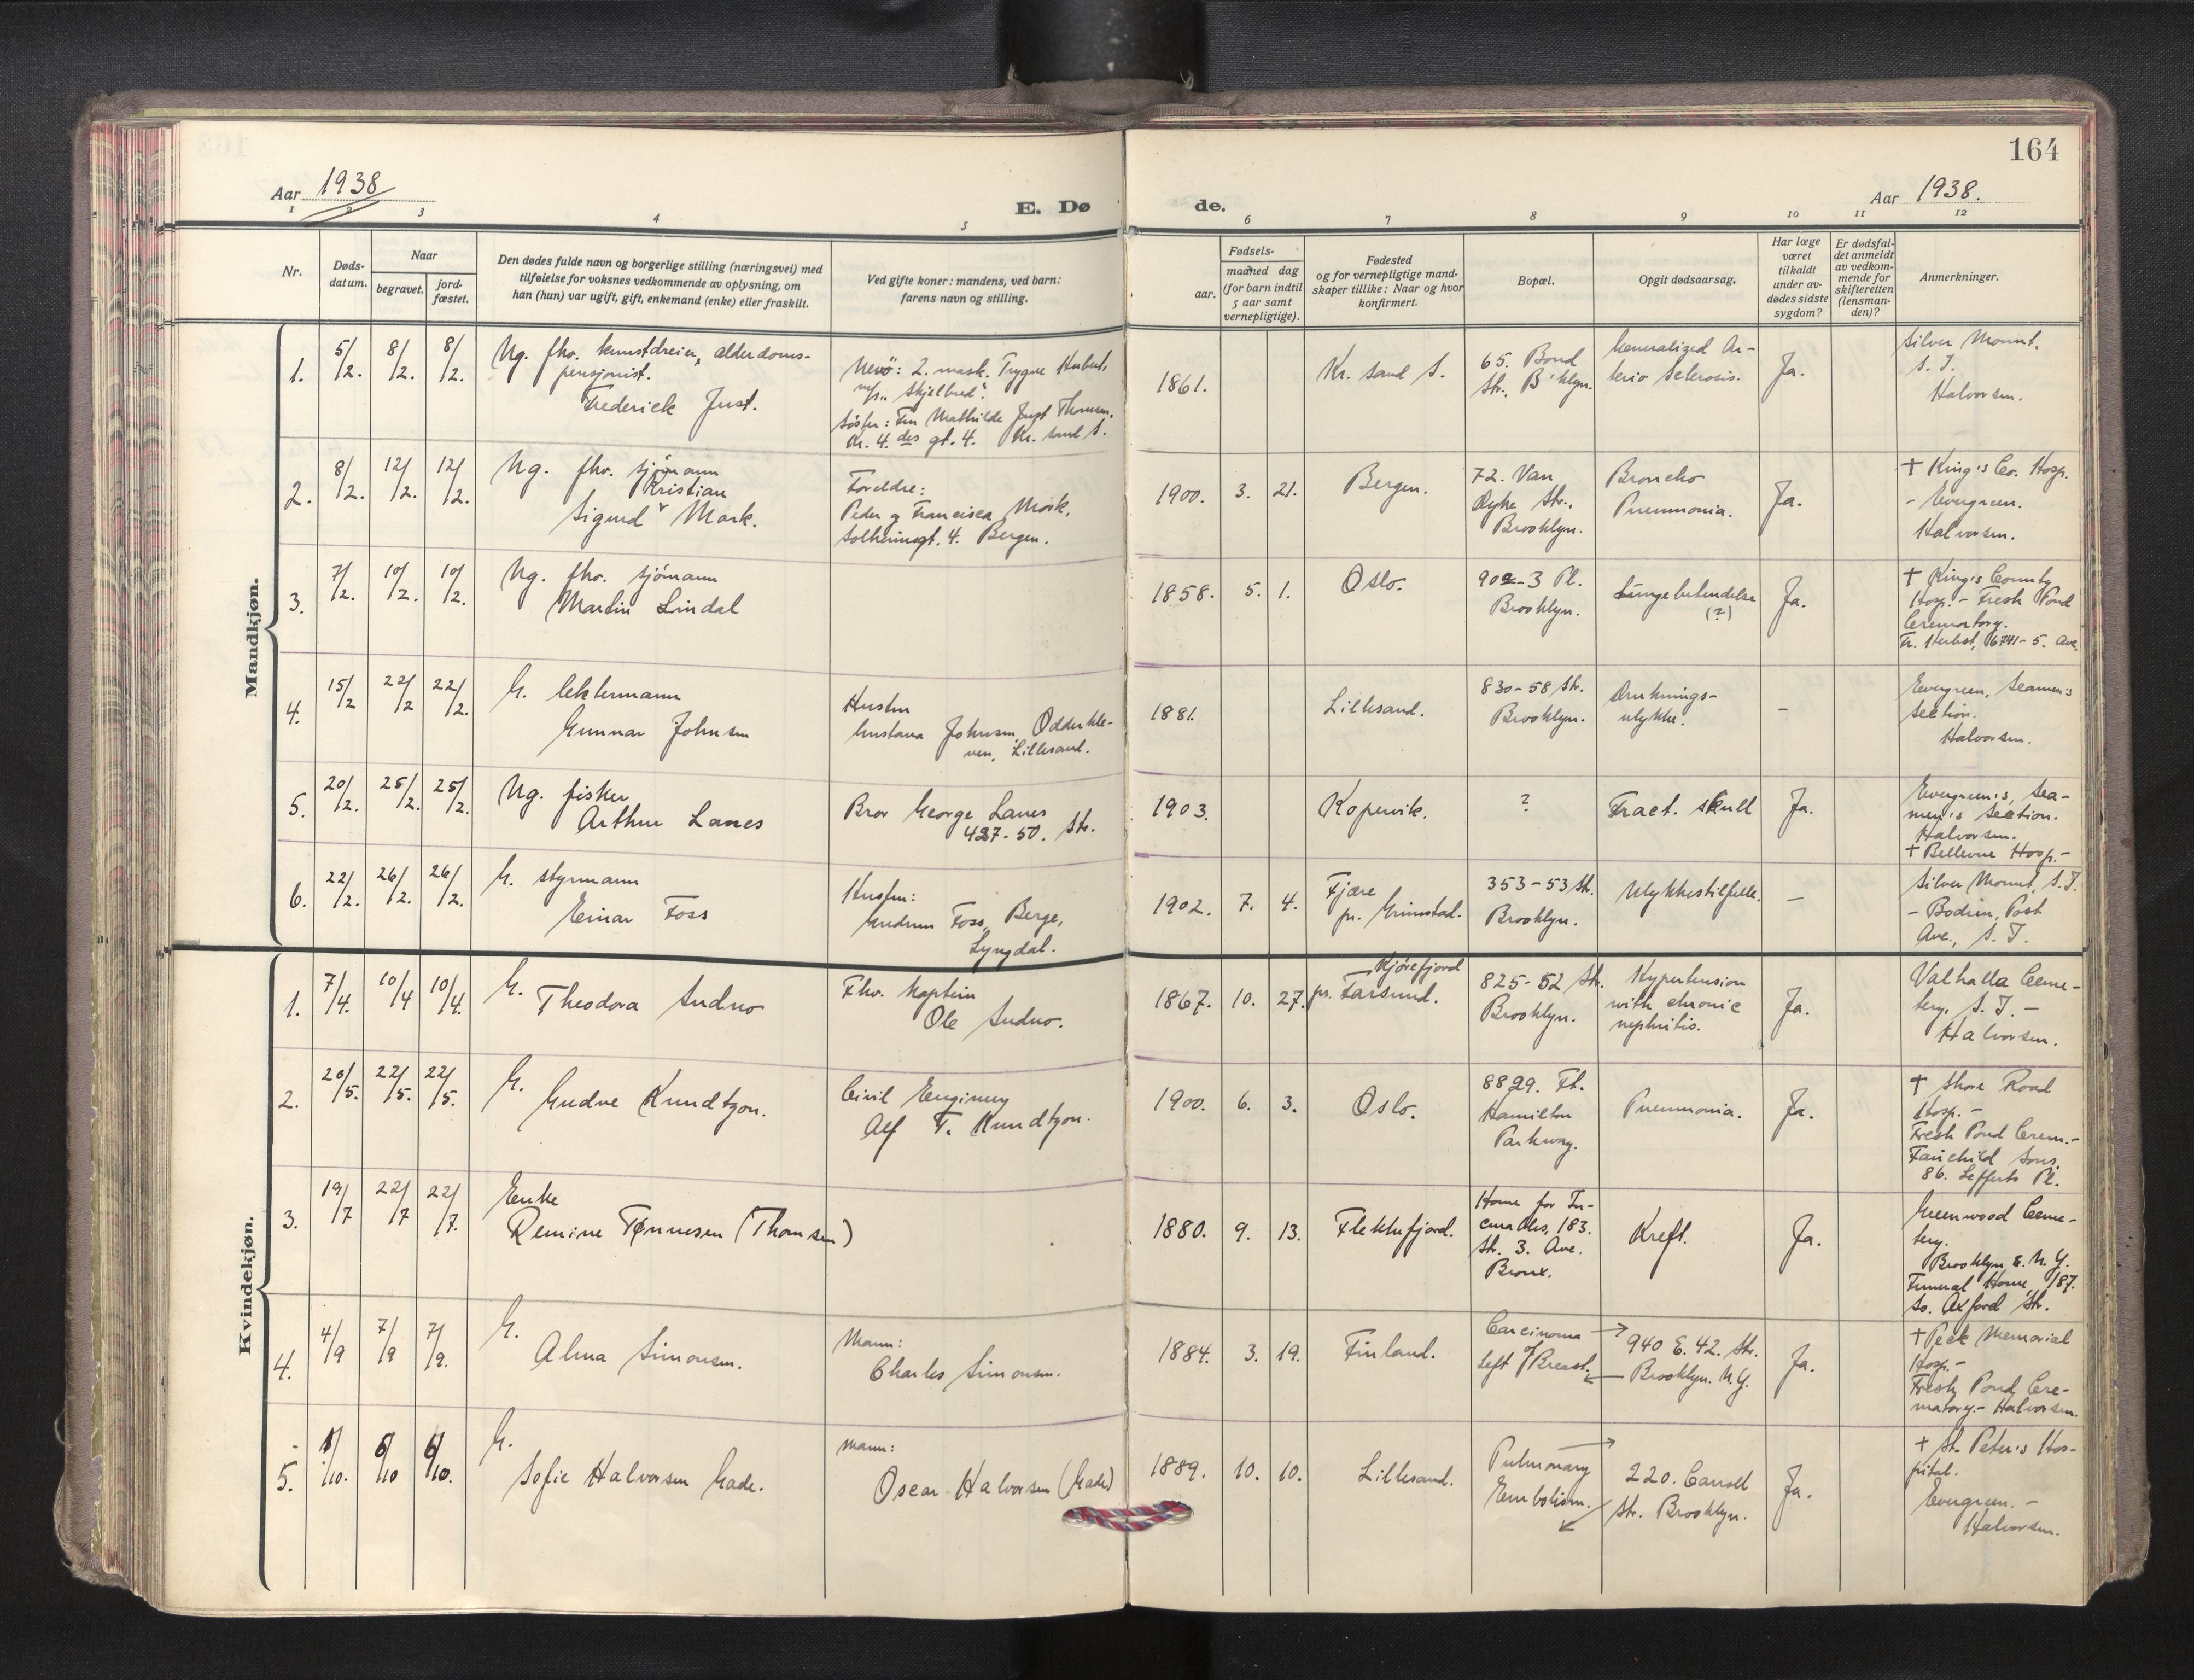 164
Aar 1938
E. Døde.
Aar 1938.
1 2 3 4 5 6 7 8 9 10 11 12
Nr.
Døds-
datum.
Naar
begravet.
jord-
fæstet.
Den dødes fulde navn og borgerlige stilling (næringsvei) med
tilføielse for voksnes vedkommende av oplysning, om
han (hun) var ugift, gift, enkemand (enke) eller fraskilt.
Ved gifte koner: mandens, ved barn:
farens navn og stilling.
Fødsels-
aar.
maaned dag
(for barn indtil
5 aar samt
vernepligtige).
Fødested
og for vernepligtige mand-
skaper tillike: Naar og hvor
konfirmert.
Bopæl.
Opgit dødsaarsag.
Har læge
været
tilkaldt
under av-
dødes sidste
sygdom?
Er dødsfal-
det anmeldt
av vedkom-
mende for
skifteretten
(lensman-
den)?
Anmerkninger.
Mandkjøn.
1.
5/2.
8/2.
8/2.
Ug. fhv. kunstdreier, alderdoms-
pensjonist.
Frederick Just.
Nevö: 2. mask. Trygve Hubert,
m/s „Skjelbred".
Söster: Fru Mathilde Just Thomsen.
Kr. 4. des gt. 4. Kr. sand S.
1861.
Kr. sand S.
65. Bond
Str. B'klyn.
Generalized Ar-
terio Sclerosis.
Ja.
Silver Mount,
S. I.
Halvorsen.
2.
8/2.
12/2.
12/2.
Ug. fhv. sjömann
Kristian
Sigurd Mørk.
Foreldre:
Peder og Francisca Mørk,
Solheimsgt. 4. Bergen.
1900. 3. 21.
Bergen.
72. Van
Dyke Str.,
Brooklyn.
Broncho
Pneumonia.
Ja.
+ King's Co. Hosp.
- Evergreen.
Halvorsen.
3.
7/2.
10/2.
10/2.
Ug. fhv. sjömann
Martin Lindal
1858. 5. 1.
Oslo.
902-3 Pl.
Brooklyn.
Lungebetendelse
(?)
Ja.
+ King's County
Hosp. - Fresh Pond
Crematory.
Fr. Herbst, 6741-5. Ave.
4.
15/2
22/2
22/2.
G. lektermann
Gunnar Johnsen
Hustru
Gustava Johnsen, Odderkle-
ven, Lillesand.
1881.
Lillesand.
830-58 Str.
Brooklyn.
Druknings-
ulykke.
-
Evergreen, Seamen's
Section.
Halvorsen.
5.
20/2.
25/2.
25/2.
Ug. fisker
Arthur Lanes
Bror George Lanes
427-50. Str.
1903.
Kopervik.
?
Fract. skull
Ja.
Evergreen's, Sea-
men's Section.
Halvorsen.
+ Bellevue Hosp.-
6.
22/2.
26/2.
26/2.
G. styrmann
Einar Foss
Hustru:
Gudrun Foss, Berge,
Lyngdal.
1902. 7. 4.
Fjære
pr. Grimstad.
353-53 Str.
Brooklyn.
Ulykkestilfelle.
-
Silver Mount, S.I.
- Bodien, Post
Ave., S. I.
Kvindekjøn.
1.
7/4.
10/4
10/4.
G.
Theodora Sudno
Fhv. Kaptein
Ole Sudno.
1867. 10. 27.
Kjörefjord
pr. Farsund.
825-52 Str.
Brooklyn.
Hypertension
with chronic
nephritis.
Ja.
Valhalla Ceme-
tery, S. I. -
Halvorsen.
2.
20/5.
22/5.
22/5.
G.
Gudve Knudtzon.
Civil Engineer
Alf T. Knudtzon.
1900. 6. 3.
Oslo.
8829. Ft.
Hamilton
Parkway.
Pneumonia.
Ja.
+ Shore Road
Hosp. -
Fresh Pond Crem.-
Fairchild Sons,
86. Lefferts Pl.
3.
19/7
22/7
22/7.
Enke
Remine Tønnesen (Thomsen)
1880. 9. 13.
Flekkefjord.
Home for In-
curables, 183.
Str. 3. Ave.
Bronx.
Kreft.
Ja.
Greenwood Ceme-
tery.
Brooklyn & N. Y.
Funeral Home, 187.
So. Oxford Str.
4.
4/9
7/9
7/9.
G.
Alma Simonsen.
Mann:
Charles Simonsen.
1884. 3. 19.
Finland.
Carcinoma
Left of Breast.
940 E. 42. Str.
Brooklyn. N.Y.
Ja.
+ Peck Memorial
Hosp.-
Fresh Pond Cre-
matory.- Halvorsen.
5.
1/10.
6/10
6/10.
G.
Sofie Halvorsen Gade.
Mann:
Oscar Halvorsen (Gade)
1889. 10. 10.
Lillesand.
Pulmonary
Embolism.
220. Carroll
Str. Brooklyn.
Ja.
+ St. Peter's Hos-
pital.
Evergreen. -
Halvorsen.